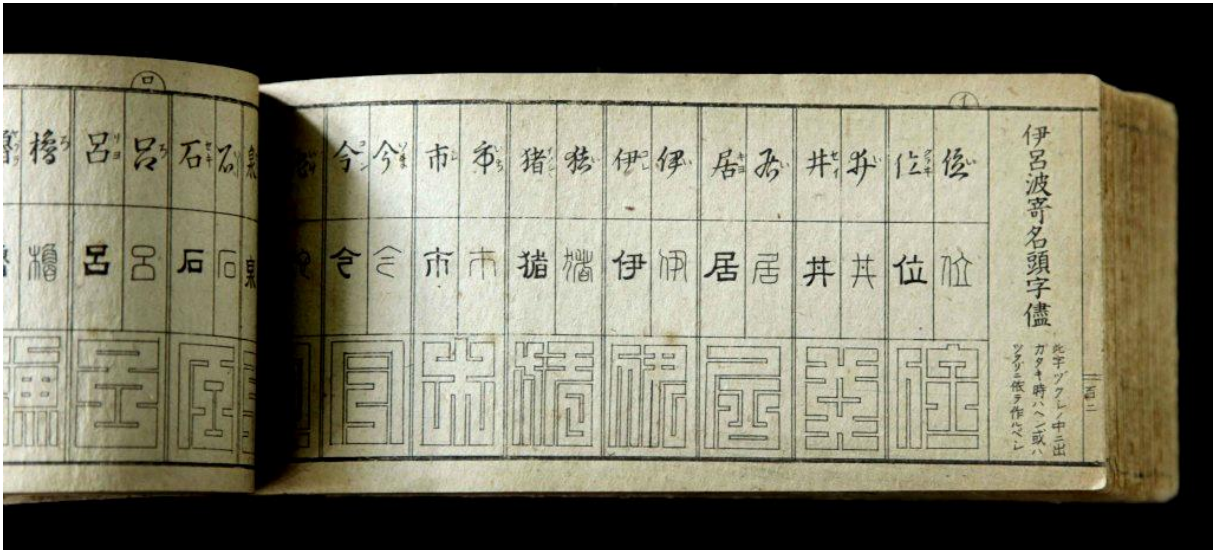 百二
伊呂波寄名頭字儘
此字ヅクシノ中ニ出
カタキ時ハヘン或ハ
ツクリニ依テ作ルベシ
イ
位 位 井 井 居 居 伊 伊 猪 猪 市 市 今 今
位 位 井 井 居 居 伊 伊 猪 猪 市 市 今 今
位 井 居 伊 猪 市 今
ロ
泉 石 石 呂 呂 櫓
泉 石 石 呂 呂 櫓
石 呂